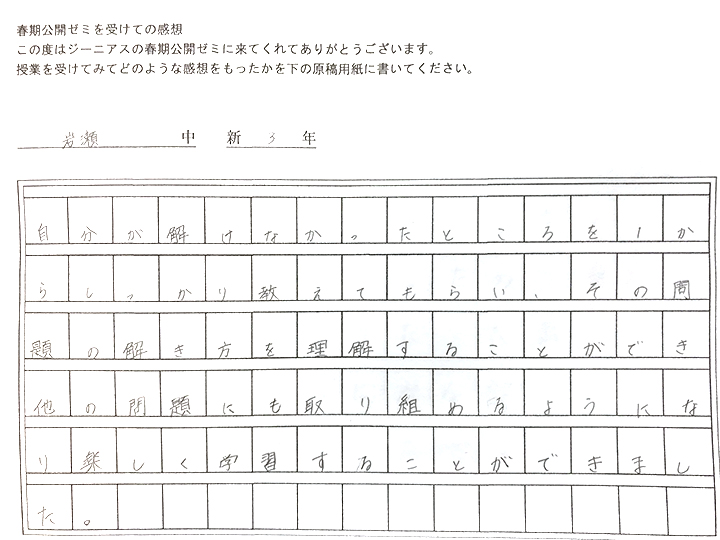 春期公開ゼミを受けての感想
この度はジーニアスの春期公開ゼミに来てくれてありがとうございます。
授業を受けてみてどのような感想をもったかを下の原稿用紙に書いてください。
岩瀬 中 新 3 年
自分が解けなかったところを1か
らしっかり教えてもらい、その問
題の解き方を理解することができ
他の問題にも取り組めるようにな
り楽しく学習することができまし
た。